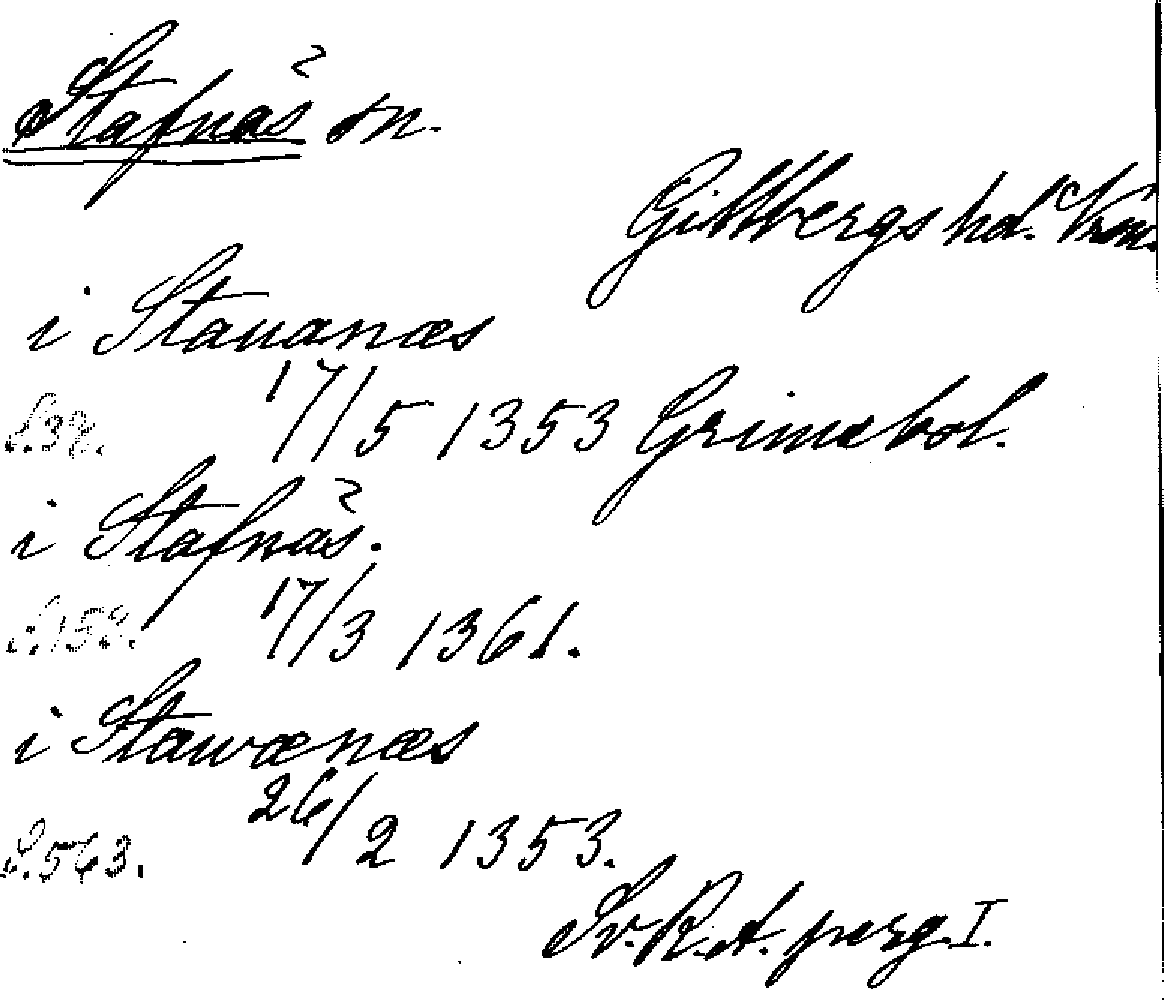 Stafnäs sn.
Gillbergs hd. Vrm.
i Stauanæs
S. 37. 17/5 1353 Grimsbol.
i Stafnäs.
S. 152. 17/3 1361.
i Stawænæs
S. 563. 26/2 1353.
Sv. R. A. perg. I.